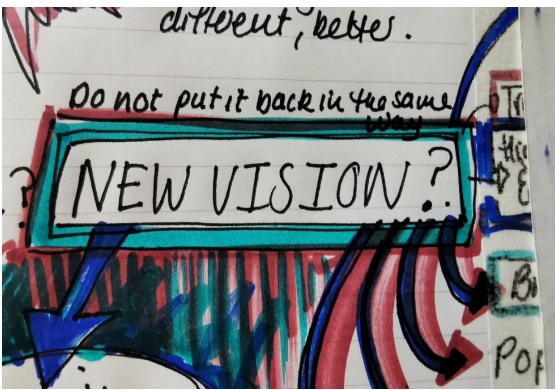 different, better.
Do not put it back in the same
way
NEW VISION?
?